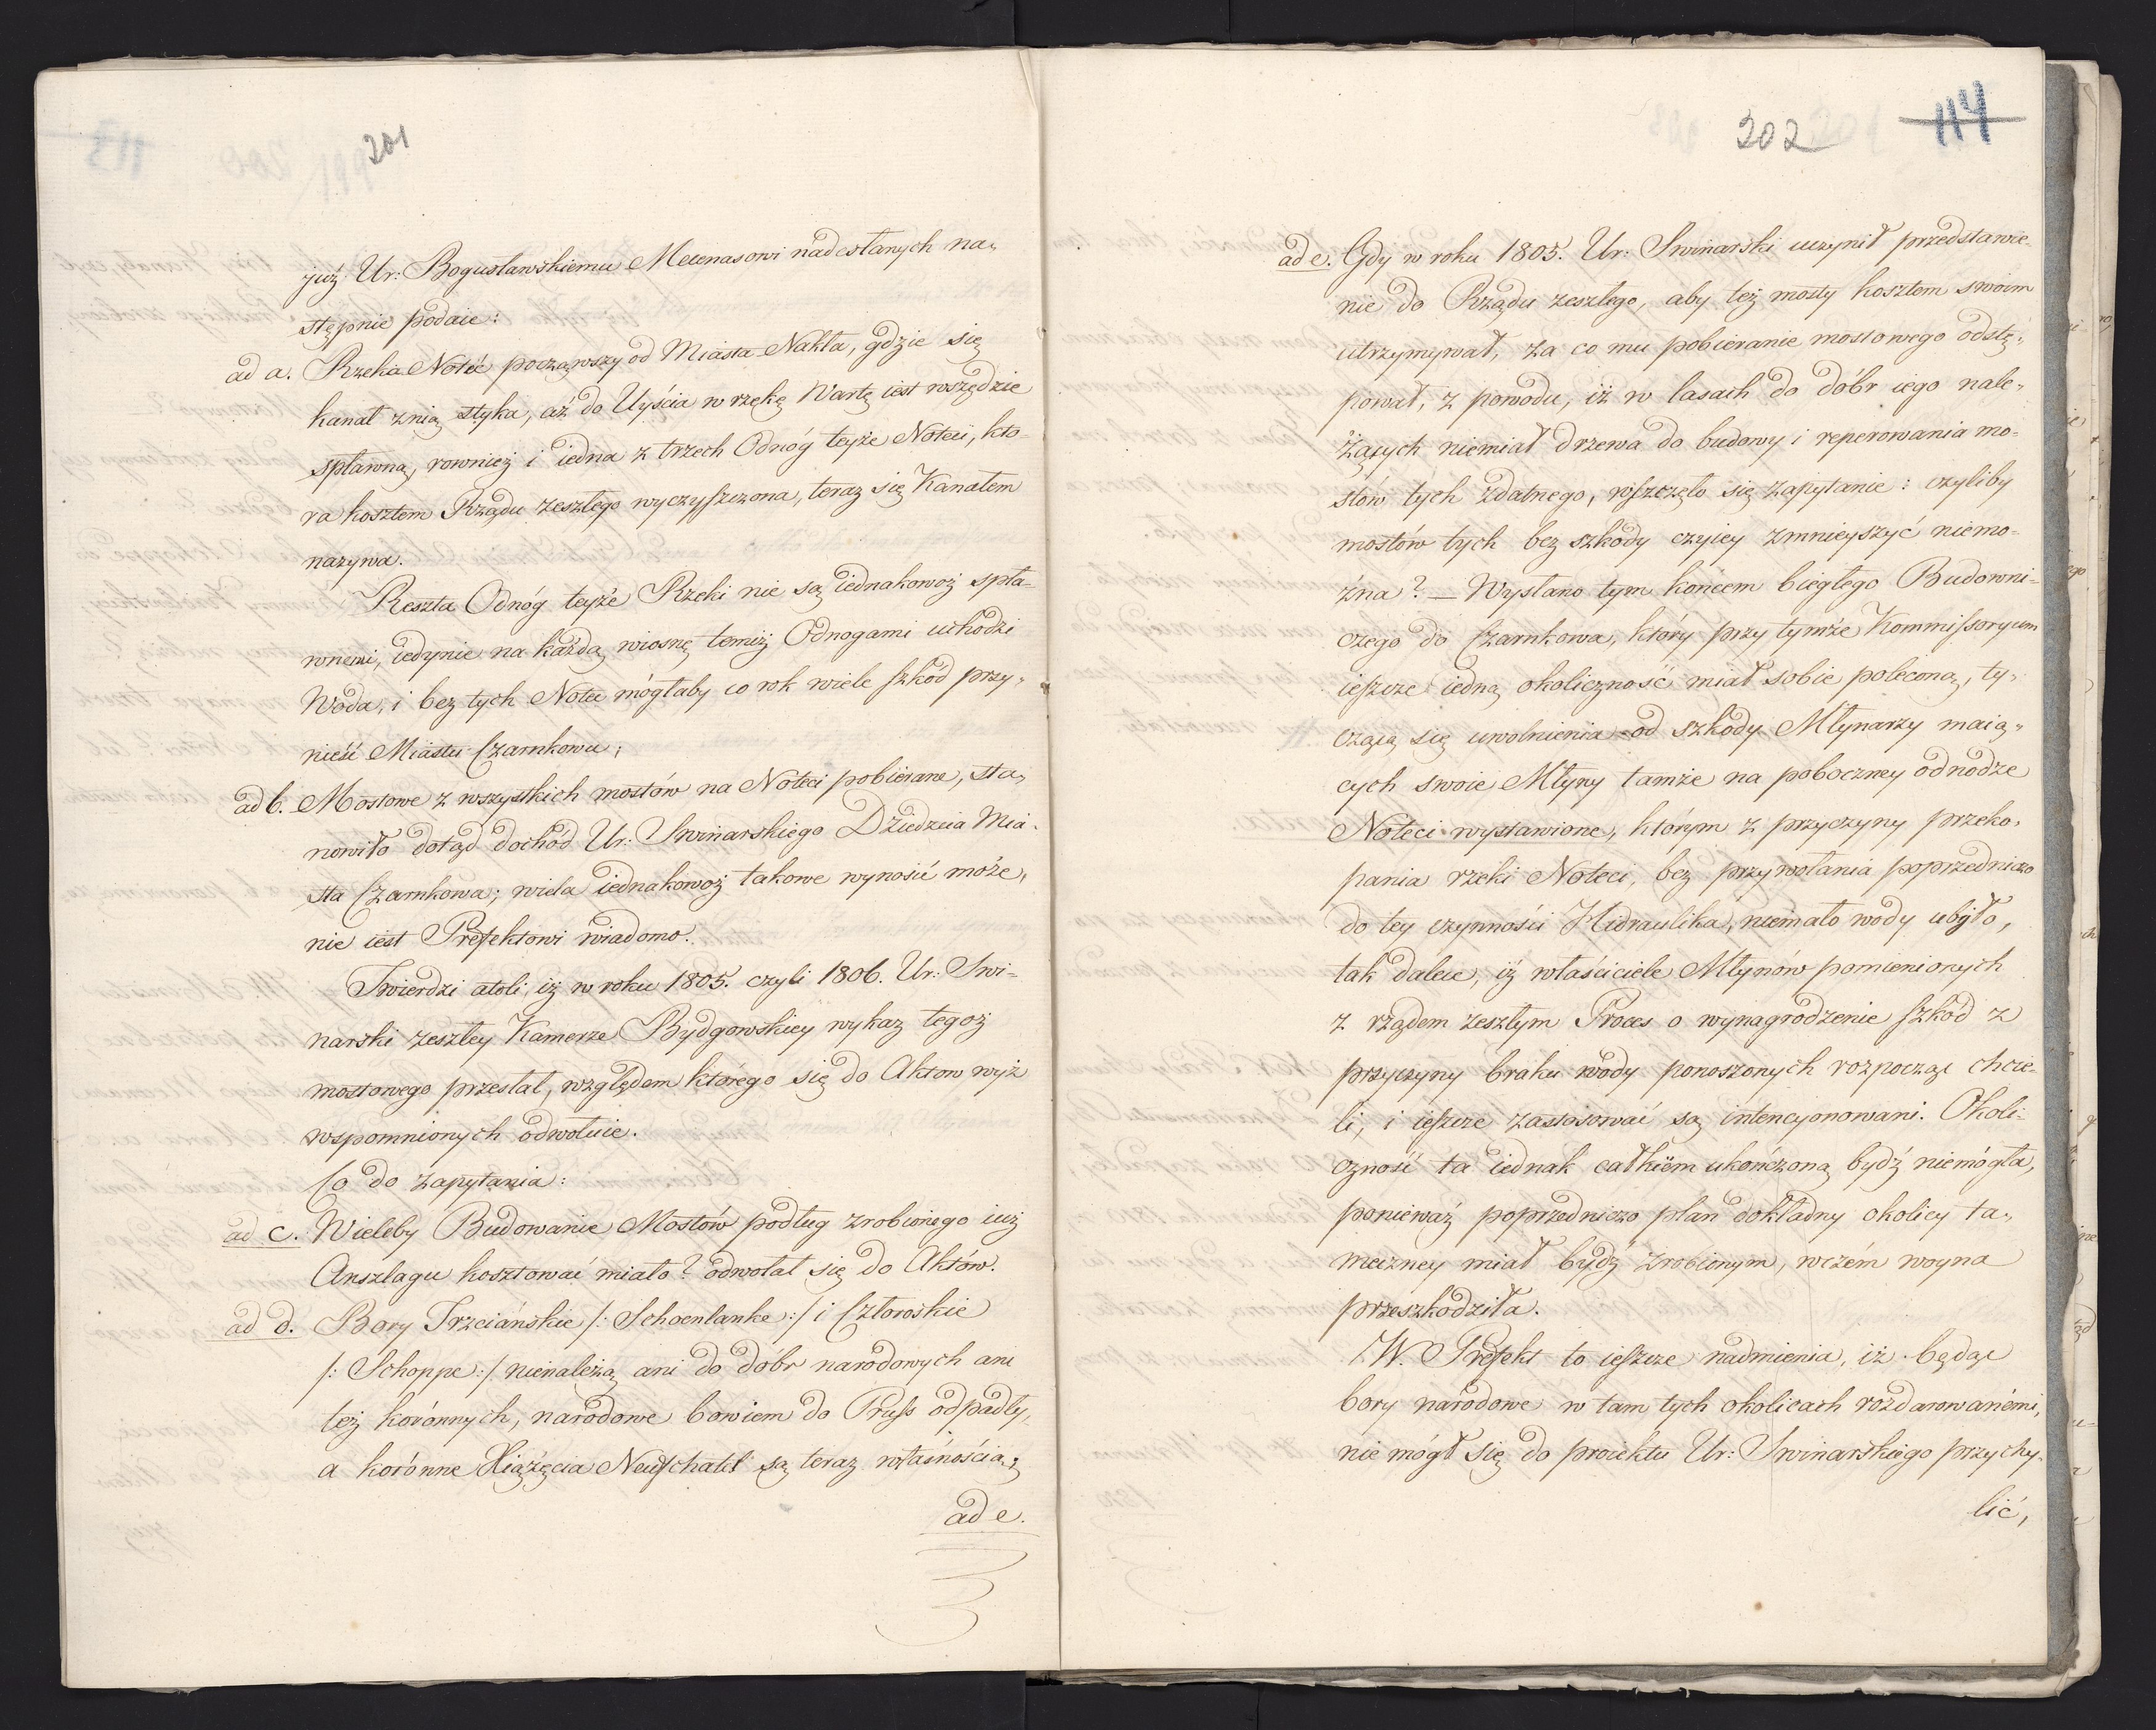 201
już Ur: Bogusławskiemu Mecenasowi nadesłanych na„
stępnie podaie:
ad a. Rzeka Noteć począwszy od Miasta Nakła, gdzie się
kanał znią styka, aż do Uyścia w rzékę Wartę iest wszędzie
spławną, rownież i iedna z trzech Odnóg teyże Noteci, kto-
ra kosztem Rządu zeszłego wyczyszczona, teraz się Kanałem
nazywa.
Reszta Odnóg teyże Rzeki nie są iednakowoż spła-
wnemi, iedynie na każdą wiosnę temiż Odnogami uchodzi
Woda, i bez tych Noteć mógłaby co rok wiele szkód przy„
nieść Miastu Czarnkowu;
ad b. Mostowe z wszystkich mostów na Noteci pobiérane, sta„
nowiło dotąd dochód Ur: Swinarskiego Dziedzica Mia-
sta Czarnkowa; wiela iednakowoż takowe wynosić może,
nie iest Prefektowi wiadomo.
Twierdzi atoli, iż w roku 1805. czyli 1806. Ur: Swi-
narski zeszłey Kamerze Bydgowskiey wykaz tegoż
mostowego przesłał, względem którego się do Aktow wyż
wspomnionych odwołuie.
Co do zapytania:
ad c. Wieleby Budowanie Mostów podług zrobionego iuż
Anszlagu kosztować miało? odwołał się do Aktów.
ad d. Bory Trzciańskie /: Schoenlanke :/ i Człoroskie
/: Schoppe :/ nienależą ani do dóbr narodowych ani
też korónnych, narodowe bowiem do Pruss odpadły,
a korónne Xiążęcia Neufchatel są teraz własnością;
ad e.
202 114
ad e. Gdy w roku 1805. Ur: Swinarski uczynił przedstawie-
nie do Rządu zeszłego, aby też mosty kosztem swoim
utrzymywał, za co mu pobieranie mostowego odstę„
pował, z powodu, iż w lasach do dóbr iego nale„
żących niemiał drzewa do budowy i reperowania mo-
stów tych zdatnego, wszczęło się zapytanie: czyliby
mostów tych bez szkody czyiey zmnieyszyć niemo-
żna? — Wysłano tym końcem biegłego Budowni-
czego do Czarnkowa, który przy tymże Kommissoryum
ieszcze iedną okoliczność miał sobie poleconą, ty„
czącą się uwolnienia od szkody Młynarzy maią„
cych swoie Młyny tamże na poboczney odnodze
Noteci wystawione, którym z przyczyny przeko„
pania rzeki Noteci, bez przywołania poprzedniczo
do tey czynności Hidraulika, niemało wody ubyło,
tak dalece, iż właściciele Młynów pomienionych
z rządem zeszłym Proces o wynagrodzenie szkód z
przyczyny braku wody ponoszonych rozpocząc chcie-
li, i ieszcze zastosować są intencyonowani. Okoli-
czność ta iednak całkiém ukończoną bydź niemógła,
ponieważ poprzedniczo plan dokładny okolicy ta„
meczney miał bydź zrobionym, wczém woyna
przeszkodziła.
JW. Prefekt to ieszcze nadmienia, iż będąc
bory narodowe w tam tych okolicach rozdarowanémi,
nie mógł się do proiektu Ur: Swinarskiego przychy-
lić,